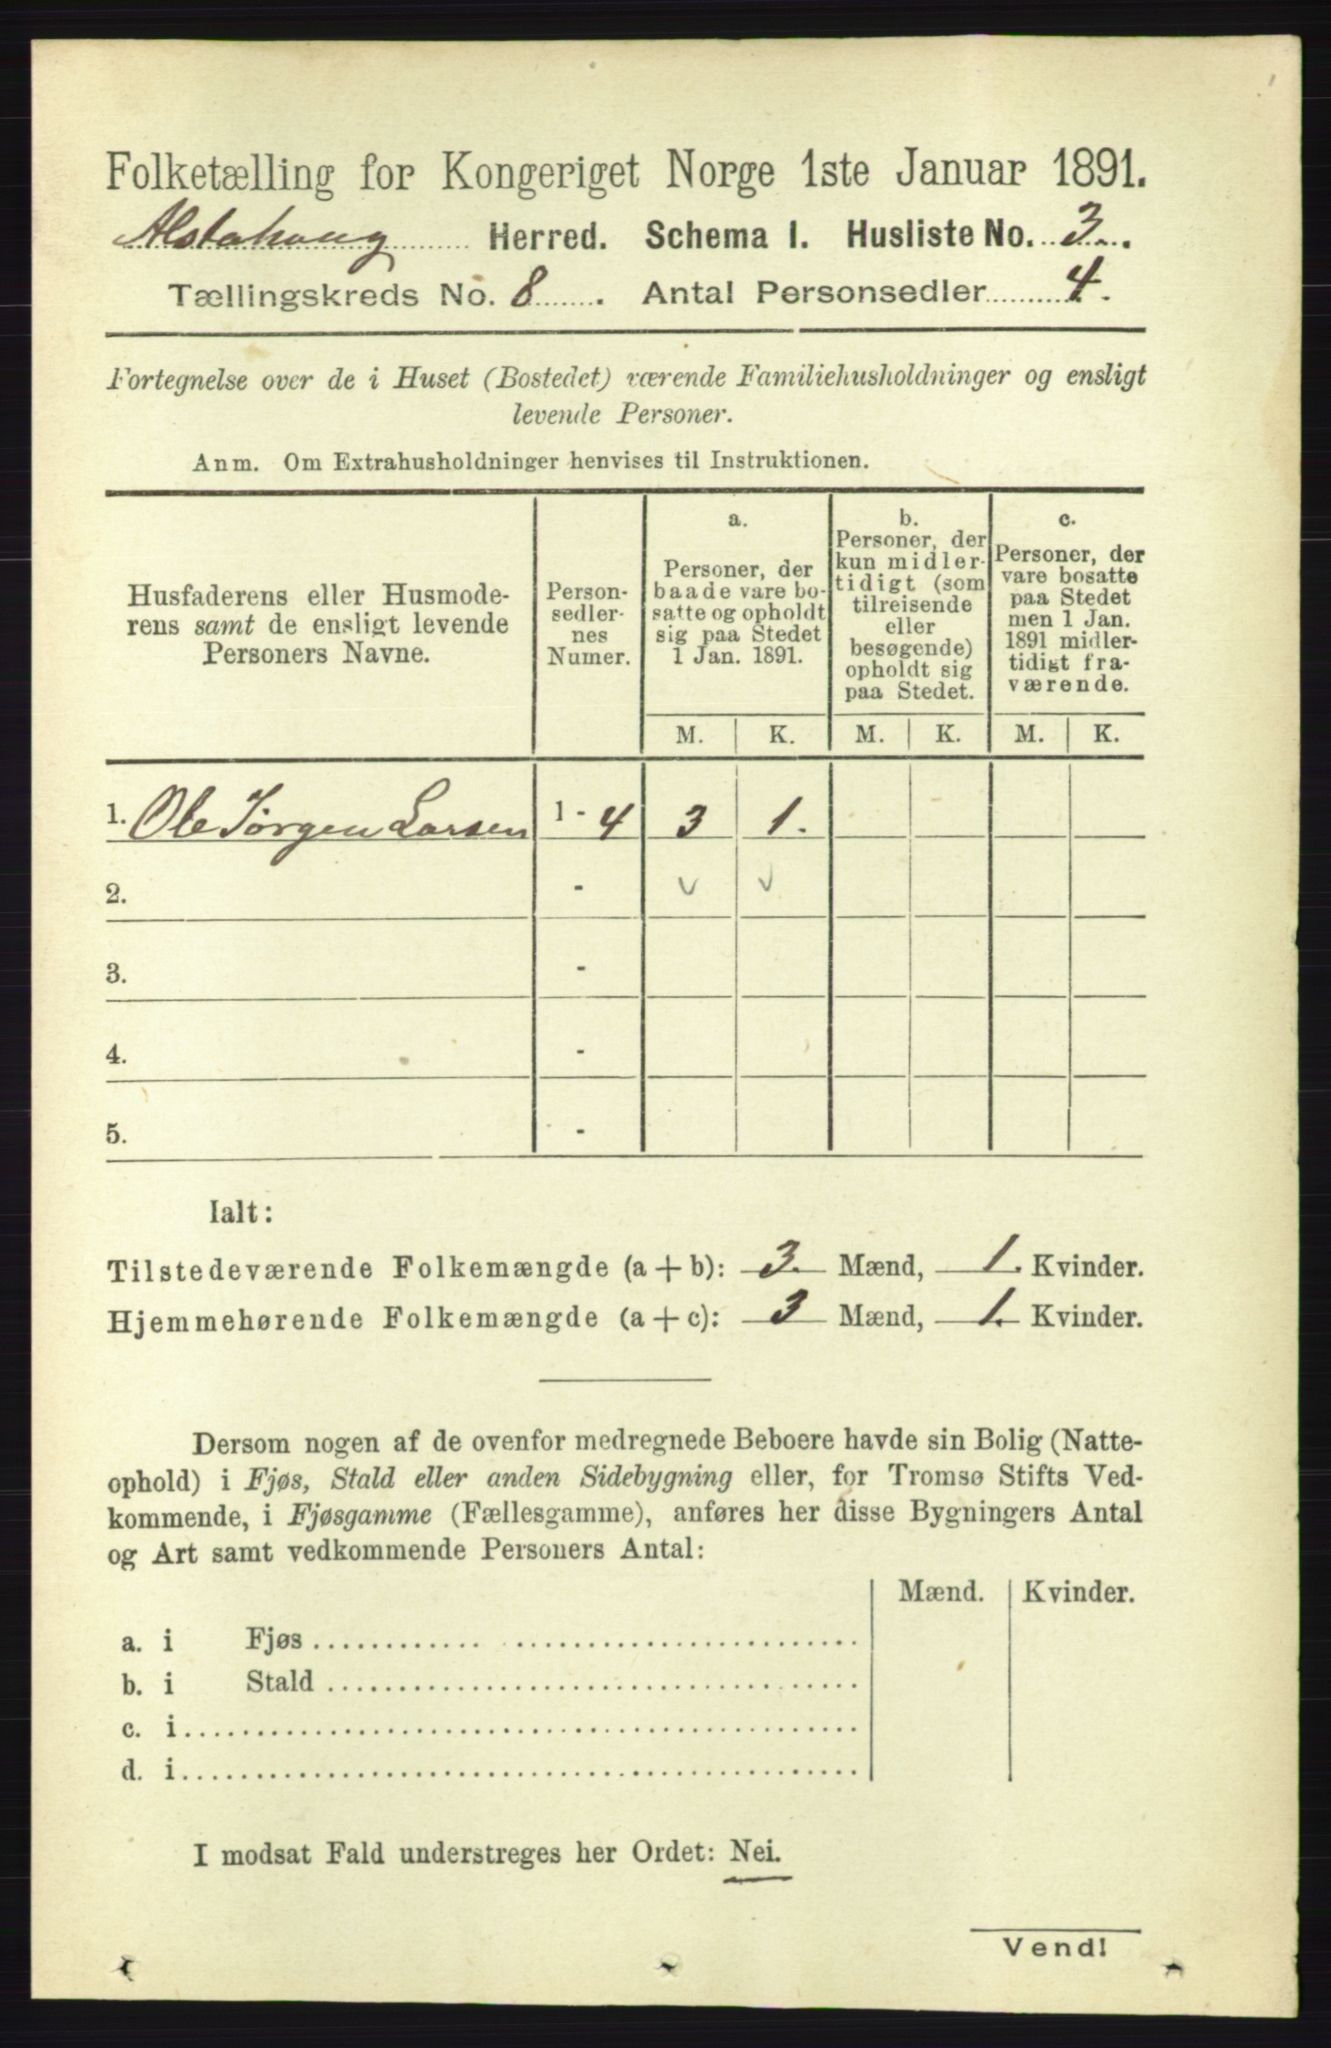 Folketælling for Kongeriget Norge 1ste Januar 1891.
Alstahoug Herred. Schema I. Husliste No. 3.
Tællingskreds No. 8. Antal Personsedler 4.
Fortegnelse over de i Huset (Bostedet) værende Familiehusholdninger og ensligt
levende Personer.
Anm. Om Extrahusholdninger henvises til Instruktionen.
Husfaderens eller Husmode-
rens samt de ensligt levende
Personers Navne.
Person-
sedler-
nes
Numer.
a.
Personer, der
baade vare bo-
satte og opholdt
sig paa Stedet
1 Jan. 1891.
b.
Personer, der
kun midler-
tidigt (som
tilreisende
eller
besøgende)
opholdt sig
paa Stedet.
c.
Personer, der
vare bosatte
paa Stedet
men 1 Jan.
1891 midler-
tidigt fra-
værende.
M. K. M. K. M. K.
1. Ole Jørgen Larsen 1 - 4 3 1.
2. -
3. -
4. -
5. -
Ialt:
Tilstedeværende Folkemængde (a + b): 3. Mænd, 1. Kvinder.
Hjemmehørende Folkemængde (a + c): 3 Mænd, 1. Kvinder.
Dersom nogen af de ovenfor medregnede Beboere havde sin Bolig (Natte-
ophold) i Fjøs, Stald eller anden Sidebygning eller, for Tromsø Stifts Ved-
kommende, i Fjøsgamme (Fællesgamme), anføres her disse Bygningers Antal
og Art samt vedkommende Personers Antal:
Mænd. Kvinder.
a. i Fjøs
b. i Stald
c. i
d. i
I modsat Fald understreges her Ordet: Nei.
Vend!